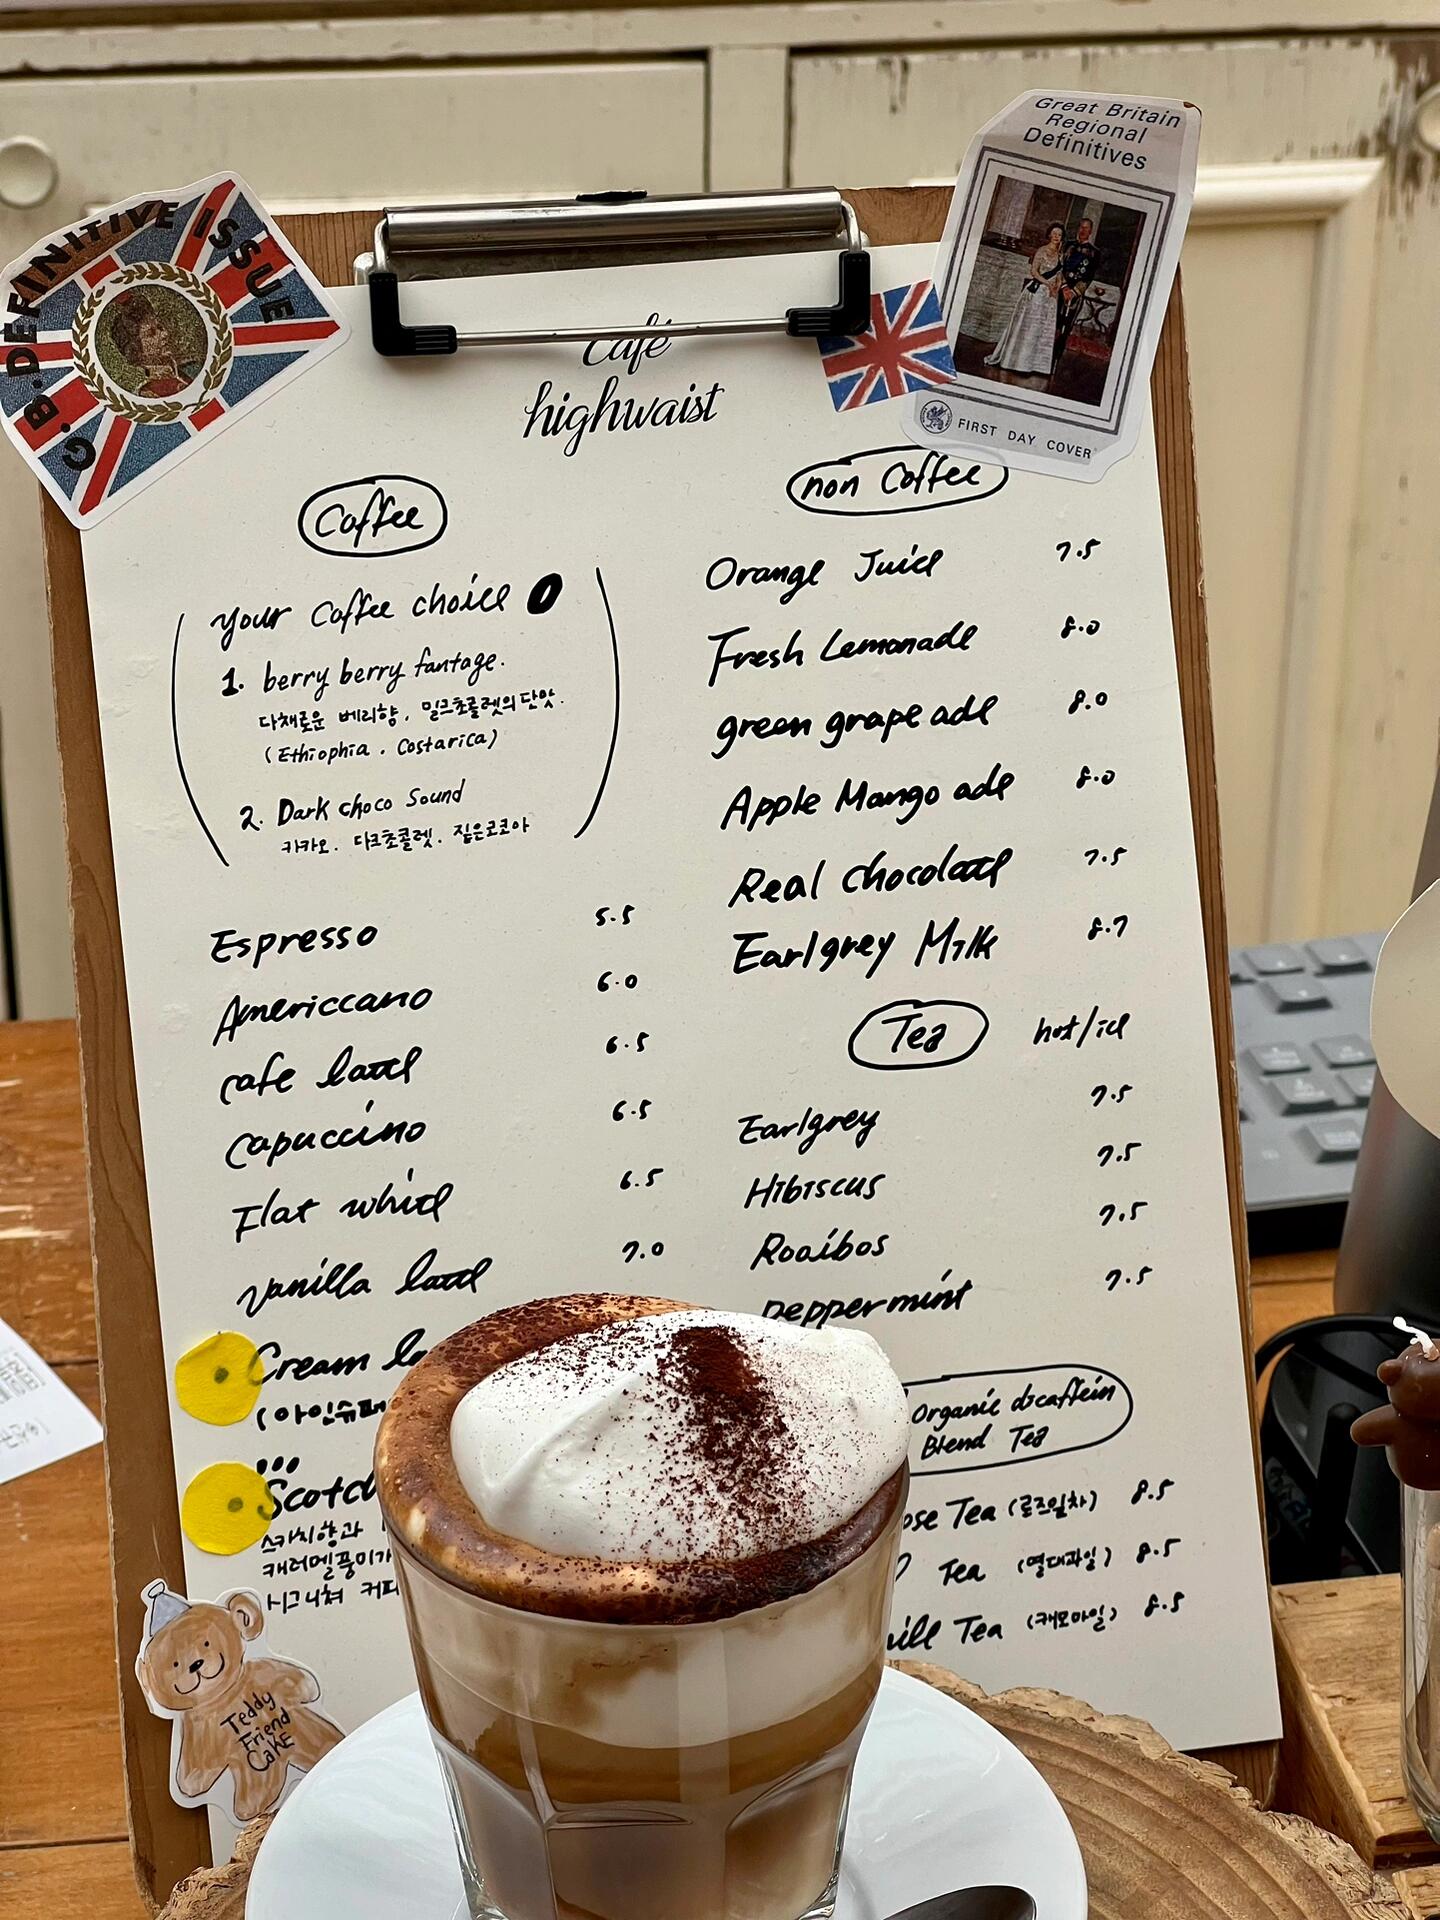 G.B. DEFINITIVE ISSUE
Great Britain
Regional
Definitives
FIRST DAY COVER
café
highwaist
Coffee
your Coffee choice
1. berry berry fantage.
다채로운 베리향. 밀크초콜렛의 단맛.
(Ethiophia . Costarica)
2. Dark choco Sound
카카오. 다크초콜렛. 짙은코코아
Espresso 5.5
Americcano 6.0
cafe latte 6.5
capuccino 6.5
Flat white 6.5
vanilla latte 7.0
Cream
(아인슈페
Scotch
스카치향과
캐러멜풍미가
시그니쳐 커피
Teddy
Friend
CaKE
non Coffee
Orange Juice 7.5
Fresh Lemonade 8.0
green grape ade 8.0
Apple Mango ade 8.0
Real chocolate 7.5
Earlgrey Milk 8.7
Tea hot/ice
Earlgrey 7.5
Hibiscus 7.5
Rooibos 7.5
peppermint 7.5
Organic decaffein
Blend Tea
ose Tea (로즈일차) 8.5
Tea (열대과일) 8.5
ill Tea (캐모마일) 8.5